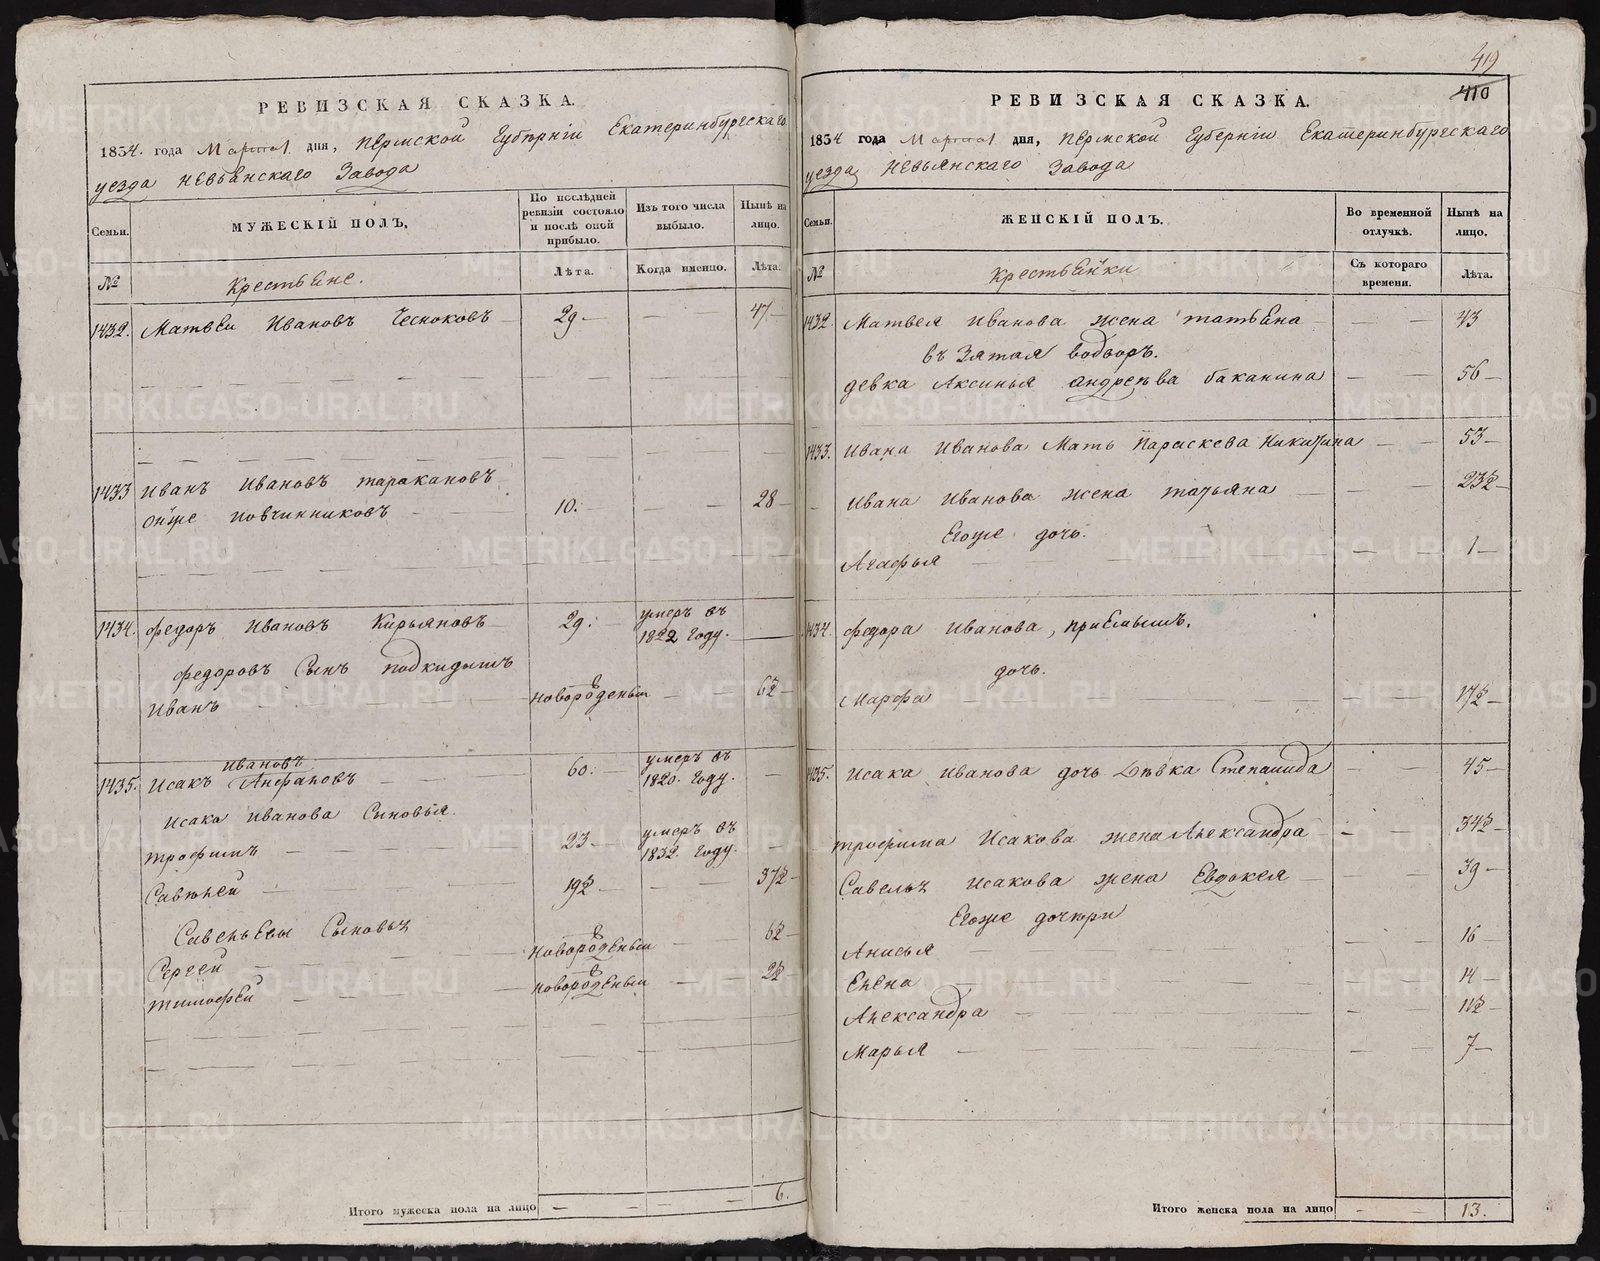 РЕВИЗСКАЯ СКАЗКА.
1834. года Марта дня, Пермской Губерніи Екатеринбургскаго
уезда Невьянскаго Завода
Семьи.
МУЖЕСКІЙ ПОЛЪ,
По послѣдней ревизіи состояло и послѣ оной прибыло.
Изъ того числа выбыло.
Нынѣ на лицо.
№
Крестьяне.
Лѣта.
Когда именно.
Лѣта.
1432. Матвеи Ивановъ Чесноковъ 29 — — — 47 —
1433 Иванъ Ивановъ таракановъ
онъже повчинниковъ — 10. — — 28 —
1434. федоръ Ивановъ Кирьяновъ 29. умеръ въ 1822 Году.
федоровъ Сынъ подкидышъ
Иванъ новорожденыи — — 6½ —
1435. Исакъ Ивановъ 60. умеръ въ 1820. Году. —
Исака Иванова Сыновья
трофимъ — 23 — умеръ въ 1832. Году. —
Савелей — 19½ — — 37½ —
Савельевы Сыновья
Сергей — новорожденыи — 6½ —
тимофей — новорожденыи — 2½ —
Итого мужеска пола на лицо — — — 6.
419
410
РЕВИЗСКАЯ СКАЗКА.
1834 года Марта дня, Пермской Губерніи Екатеринбургскаго
уезда Невьянскаго Завода
Семьи.
ЖЕНСКІЙ ПОЛЪ.
Во временной отлучкѣ.
Нынѣ на лицо.
№
Крестьянки
Съ котораго времени.
Лѣта.
1432. Матвея Иванова жена татьяна — — 43
девка Аксинья андреева баканина — — 56 —
1433. Ивана Иванова Мать Параскева Никитина — — 53 —
Ивана Иванова жена татьяна — — 23½ —
Егоже дочь.
Агафья — — 1 —
1434. федора Иванова,
дочь.
Марфа — — 17½ —
1435. Исака Иванова дочь Дѣвка Степанида — — 45 —
трофима Исакова жена Александра — — 34½ —
Савелья Исакова жена Евдокея — — 39 —
Егоже дочери
Анисья — — 16 —
Елена — — 14 —
Александра — — 11½ —
Марья — — 7 —
Итого женска пола на лицо — — 13.
METRIKI.GASO-URAL.RU